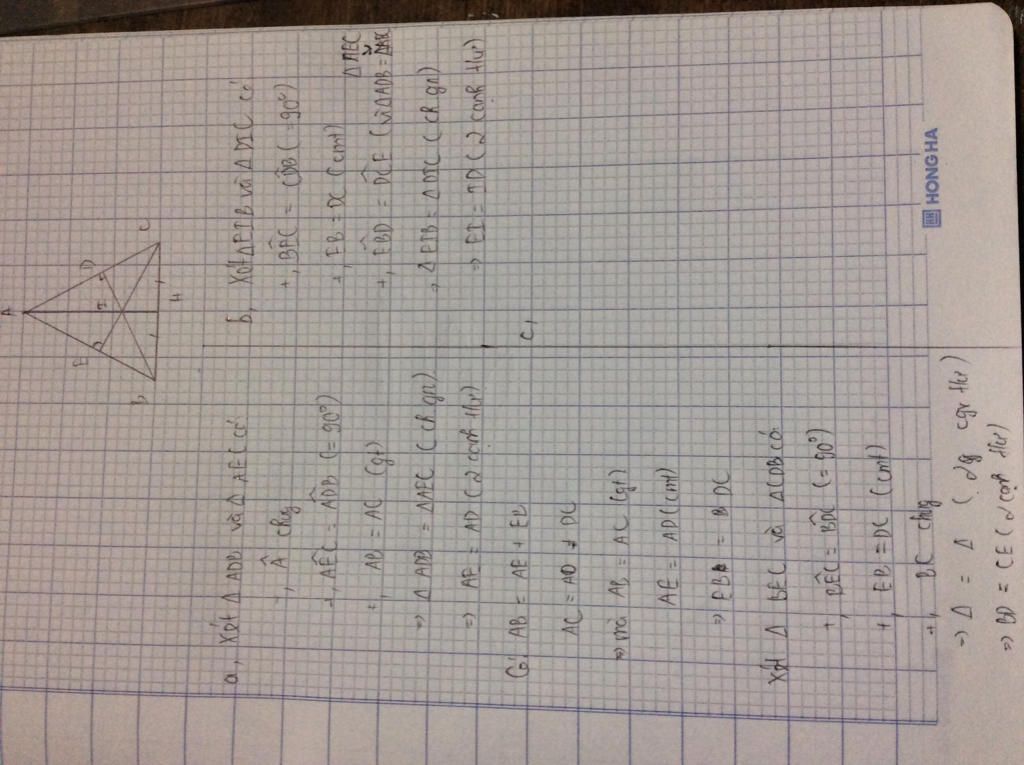 A
E
D
I
B
H
C
a, Xét Δ ADB và Δ AEC có
+, Â chg
+, AÊC = ADB (= 90°)
+, AB = AC (gt)
=> Δ ADB = Δ AEC (ch gn)
=> AE = AD (2 cạnh t/ư)
Có AB = AE + EB
AC = AD + DC
=> mà AB = AC (gt)
AE = AD (cmt)
=> EB = DC
Xét Δ BEC và Δ CDB có
+, BÊC = BDC (= 90°)
+, EB = DC (cmt)
+, BC chug
=> Δ = Δ ( 2g cgv t/ư)
=> BD = CE (2 cạnh t/ư)
b, Xét Δ EIB và Δ DIC có
+, BÊC = CDB (= 90°)
+, EB = DC (cmt)
Δ AEC
+, EBD = DCE (vì Δ ADB =
=> Δ EIB = Δ DIC (ch gn)
=> EI = ID (2 cạnh t/ư)
c,
HONG HA